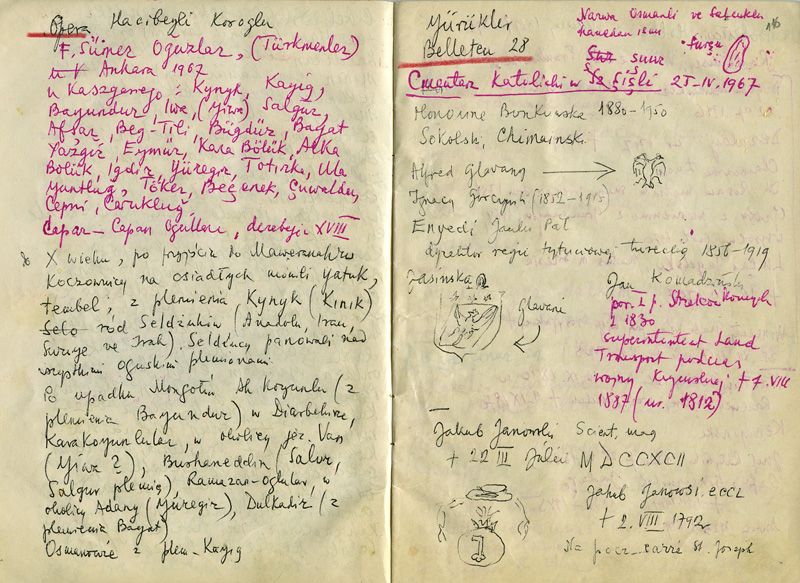 Opera Hacibegli Koroglu
F. Sümer Oguzlar, (Türkmenler)
Ankara 1967
u Kaszgarego: Kynyk, Kayig,
Bayundur, Iwa, (Yiwa) Salgur,
Afşar, Beg-Tili, Bügdüz, Bayat
Yazgir, Eymür, Kara Bölük, Alka
Bölük, Igdir, Yüregir, Totirka, Ula
Yuntlug, Töker, Beçenek, Çuwaldar,
Çepni, Çaruklug
Çapar-Çapan Ogullari, derebeyi XVIII
do X wieku, po przyjściu do Mawerannahru
koczownicy na osiadłych mówili yatuk,
tembel; z plemienia Kynyk (Kinik)
Selo ród Seldżuków (Anadolu, Iran,
Suriye ve Irak). Seldżucy panowali nad
wszystkimi oguskimi plemionami.
Po upadku Mongołów Ak Koyunlu (z
plemienia Bayundur) w Diarbekirze,
Karakoyunlular, w okolicy jez. Van
(Yiwa?), Burhaneddin (Salur,
Salgur plemię), Ramazan-Ogkular, w
okolicy Adany (Yüregir), Dulkadir (z
plemienia Bayat)
Osmanowie z plem. Kayig
Yürükler
Belleten 28
Narwa Osmanli ve Selçuken
hanedan
Cmentarz Katolicki w Şişli 25-IV.1967
Honorine Bonkowska 1880-1950
Sokolski, Chimainski
Alfred Glavany
Ignacy Jorczynski (1852-1915)
Enyedi Janku Pal
dyrektor regii tytuniowej tureckiej 1856-1919
Jasinska
Glavani
Jan Komadziński
por. 1 p. Strzelców Konnych
z 1830
superintentent Land
Transport podczas
wojny Krymskiej + 7.VIII
1887 (ur. 1812)
Jakub Janowski Scient. mag
+ 22 III Julii MDCCXCII
Jakub Janowsi eccl
+ 2. VIII 1792
St. Joseph